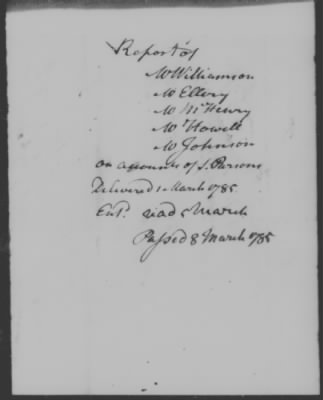 Report of
Mr Williamson
Mr Ellery
Mr McHenry
Mr Howell
Mr Johnson
on accounts of S. Parsons
Delivered 1 March 1785
Entd. read 5 March
Passed 8 March 1785